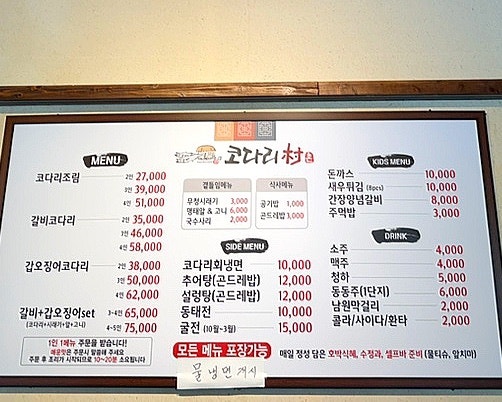 코다리村
MENU
코다리조림 2인 27,000
3인 39,000
4인 51,000
갈비코다리 2인 35,000
3인 46,000
4인 58,000
갑오징어코다리 2인 38,000
3인 50,000
4인 62,000
갈비+갑오징어set 3~4인 65,000
(코다리+시래기+알+고니) 4~5인 75,000
1인 1메뉴 주문을 받습니다!
매운맛은 주문시 말씀해 주세요
주문 후 조리가 시작되므로 10~20분 소요됩니다
곁들임메뉴
무청시래기 3,000
명태알 & 고니 6,000
국수사리 2,000
식사메뉴
공기밥 1,000
곤드레밥 3,000
SIDE MENU
코다리회냉면 10,000
추어탕(곤드레밥) 12,000
설렁탕(곤드레밥) 12,000
동태전 10,000
굴전 (10월~3월) 15,000
모든 메뉴 포장가능
물냉면 개시
KIDS MENU
돈까스 10,000
새우튀김 (8pcs) 10,000
간장양념갈비 8,000
주먹밥 3,000
DRINK
소주 4,000
맥주 4,000
청하 5,000
동동주(1단지) 6,000
남원막걸리 2,000
콜라/사이다/환타 2,000
매일 정성 담은 호박식혜, 수정과, 셀프바 준비 (물티슈, 앞치마)